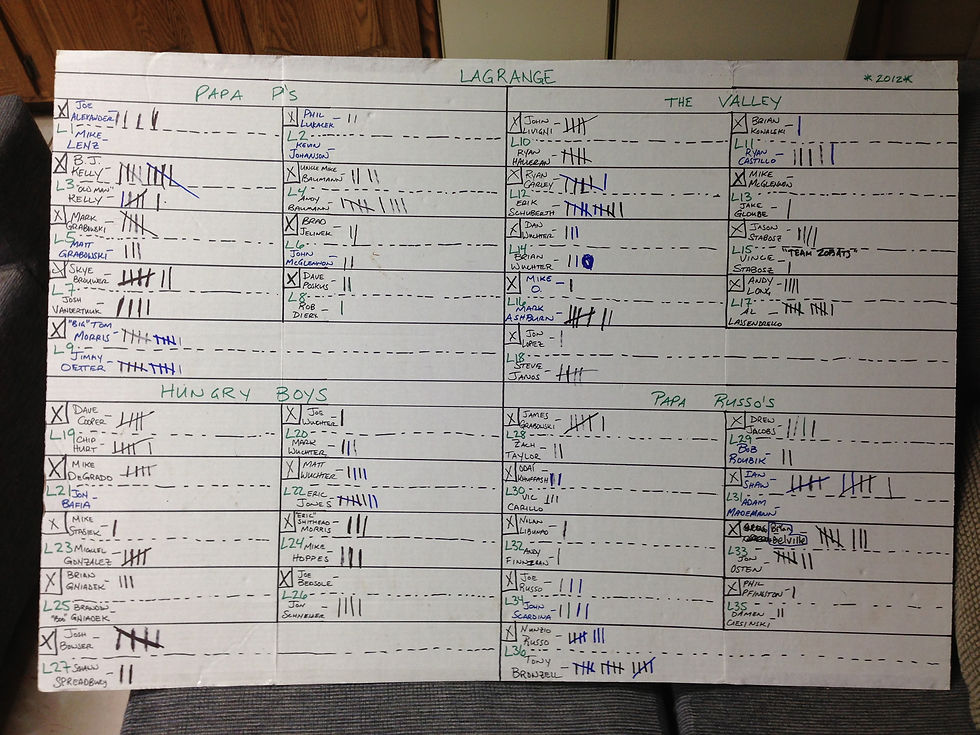 LAGRANGE
*2012*
PAPA P'S
JOE
ALEXANDER
L1
MIKE
LENZ
B.J.
KELLY
L3 "OLD MAN"
KELLY
MARK
GRABOWSKI
L5
MATT
GRABOWSKI
SKYE
BROUWER
L7
JOSH
VANDERTUUK
"BIG" TOM
MORRIS
L9
JIMMY
OETTER
PHIL
LUKACEK
L2
KEVIN
JOHANSON
UNCLE MIKE
BAUMANN
L4
ANDY
BAUMANN
BRAD
JELINEK
L6
JOHN
MCGLENNON
DAVE
POSKUS
L8
ROB
DIERX
THE VALLEY
JOHN
LIVIGNI
L10
RYAN
HALLERAN
RYAN
GARLEY
L12
ERIK
SCHUBERTH
DAN
WUCHTER
L14
BRIAN
WUCHTER
MIKE
O.
L16
MARK
ASHBURN
JON
LOPEZ
L18
STEVE
JANOS
BRIAN
KOWALSKI
L11
RYAN
CASTILLO
MIKE
MCGLENNON
L13
JAKE
GLOMBE
JASON
STABOSZ
L15
VINCE "TEAM ZOBATS"
STABOSZ
ANDY
LONG
L17
AL
HUNGRY BOYS
DAVE
COOPER
L19
CHIP
HURT
MIKE
DEGRADO
L21 JON
BAFIA
MIKE
STASIEK
L23 MIGUEL
GONZALEZ
BRIAN
GNIADEK
L25 BRANDON
"BOO" GNIADEK
JOSH
BOWSER
L27 SHAWN
SPREADBURY
JOE
WUCHTER
L20
MARK
WUCHTER
MATT
WUCHTER
L22 ERIC
JONES
"ERIC"
SHITHEAD
MORRIS
L24 MIKE
HOPPES
JOE
BEDSOLE
L26
JON
SCHNELLER
PAPA RUSSO'S
JAMES
GRABOWSKI
L28
ZACH
TAYLOR
ODAI
L30
VIC
CARILLO
NILAN
L32
ANDY
FINNEGAN
JOE
RUSSO
L34
JOHN
SCARDINA
NUNZIO
RUSSO
L36
TONY
BRONZELL
DREW
JACOBS
L29
BOB
ROUBIK
IAN
SHAW
L31
ADAM
MADEMANN
Brian
Belville
L33
JON
OSTEN
PHIL
PFINGSTON
L35
DAMEN
CIESINSKI